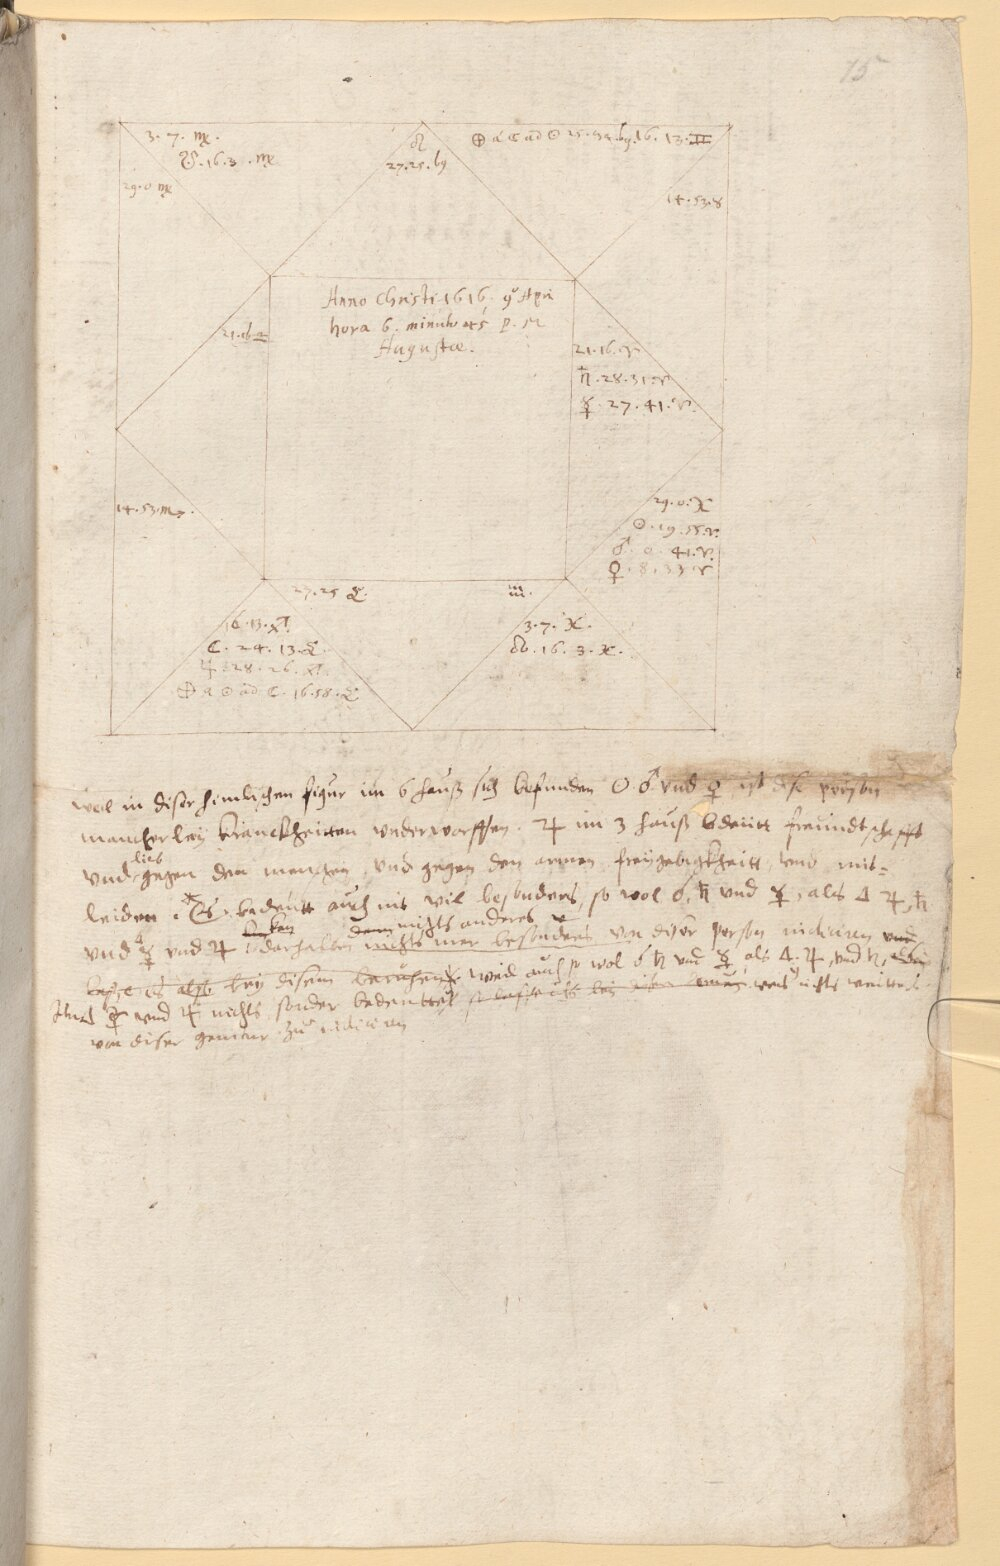 15
3. 7. ♍.
☋. 16. 3. ♍
29. 0 ♍
♌
27. 25.
⊕ a ☾ ad ☉ 25. 16. 13. ♊
14. 53. ♉
Anno Christi 1616. 9 Apri
hora 6. minuto 45 p. M
Augustæ.
21. 16 ♎
21. 16. ♈
♄. 28. 31. ♈
☿. 27. 41. ♈.
14. 53. ♏.
29. 0. ♓
☉. 19. 55. ♈.
♂. 0. 41. ♈.
♀. 8. 33 ♈
27. 25 ♑.
♒.
16. 13. ♐.
☾. 24. 13. ♐.
♃. 28. 26. ♐.
⊕ a ☉ ad ☾. 16. 58. ♐
3. 7. ♓.
☊. 16. 3. ♓.
Weil in diser himlischen figur im 6 hauß sich befinden ☉ ♂ vnd ♀ ist dise person
mancherley kranckheiten vnderworffen. ♃ im 3 hauß bedeutt freundtschafft
lieb
vnd gegen den menschen, vnd gegen den armen freygebigkheitt, vnd mit-
leiden. bedeutt auch nit vil besonders, so wol ☌ ♄ und ☿, als △ ♃, ♄
nichts anderes
vnd ☿ vnd ♃ derhalben nichts mer besonders von diser person
bey disem weil auch so wol ☌ ♄ vnd ☿ als △. ♃ vnd ♄,
☿ vnd ♃ nichts sonder bedeutten nichts weitters
von diser genitur zu